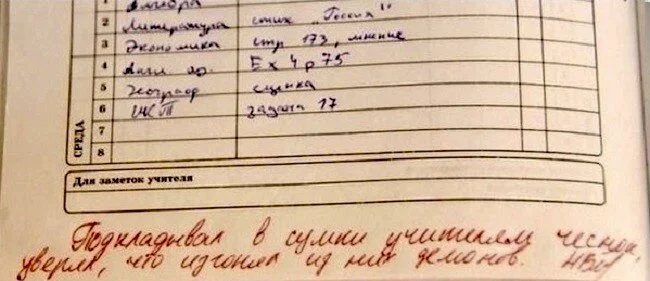 1 Алгебра
2 Литература стих „Россия"
3 Экономика стр 173, мнение
4 Англ. яз. Ex 4 p 75
5 Географ сценка
6 задача 17
7
8
СРЕДА
Для заметок учителя
Подкладывал в сумки учителям чеснок,
уверял, что изгонял из них демонов.